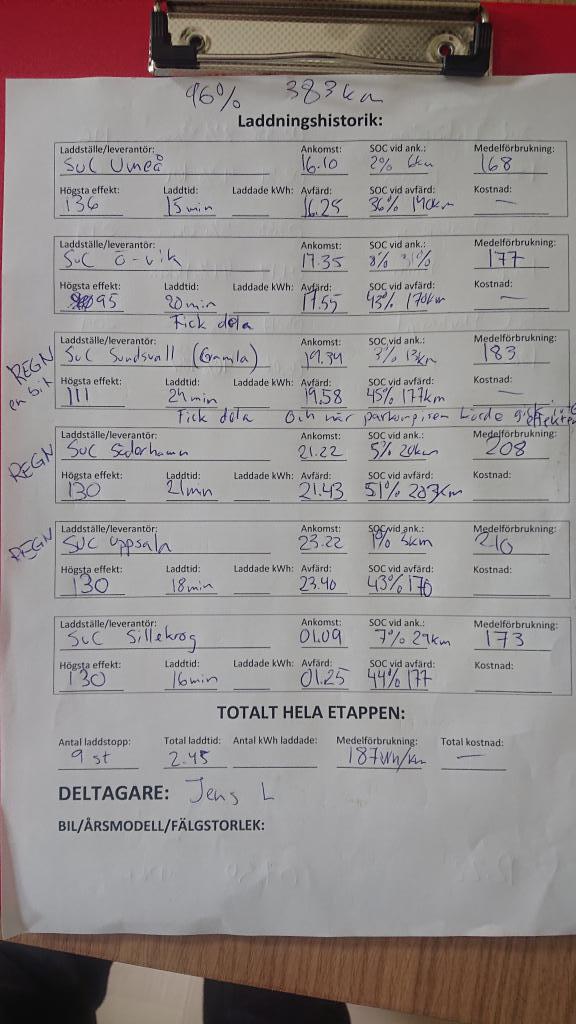 96% 383km
Laddningshistorik:
Laddställe/leverantör: Ankomst: SOC vid ank.: Medelförbrukning:
SuC Umeå 16.10 2% 6km 168
Högsta effekt: Laddtid: Laddade kWh: Avfärd: SOC vid avfärd: Kostnad:
136 15min 16.25 36% 140km —
Laddställe/leverantör: Ankomst: SOC vid ank.: Medelförbrukning:
SuC Ö-vik 17.35 8% 177
Högsta effekt: Laddtid: Laddade kWh: Avfärd: SOC vid avfärd: Kostnad:
95 20min 17.55 43% 170km —
Fick dela
Laddställe/leverantör: Ankomst: SOC vid ank.: Medelförbrukning:
REGN SuC Sundsvall (Gamla) 19.34 3% 13km 183
en bit
Högsta effekt: Laddtid: Laddade kWh: Avfärd: SOC vid avfärd: Kostnad:
111 24min 19.58 45% 177km —
Fick dela Och när parkompisen körde gick effekten
Laddställe/leverantör: Ankomst: SOC vid ank.: Medelförbrukning:
REGN SuC Söderhamn 21.22 5% 20km 208
Högsta effekt: Laddtid: Laddade kWh: Avfärd: SOC vid avfärd: Kostnad:
130 21min 21.43 51% 203km
Laddställe/leverantör: Ankomst: SOC vid ank.: Medelförbrukning:
REGN SUC Uppsala 23.22 1% 5km 210
Högsta effekt: Laddtid: Laddade kWh: Avfärd: SOC vid avfärd: Kostnad:
130 18min 23.40 43% 170
Laddställe/leverantör: Ankomst: SOC vid ank.: Medelförbrukning:
SuC Sillekrog 01.09 7% 29km 173
Högsta effekt: Laddtid: Laddade kWh: Avfärd: SOC vid avfärd: Kostnad:
130 16min 01.25 44% 177
TOTALT HELA ETAPPEN:
Antal laddstopp: Total laddtid: Antal kWh laddade: Medelförbrukning: Total kostnad:
9 st 2.45 187Wh/km —
DELTAGARE: Jens L
BIL/ÅRSMODELL/FÄLGSTORLEK: